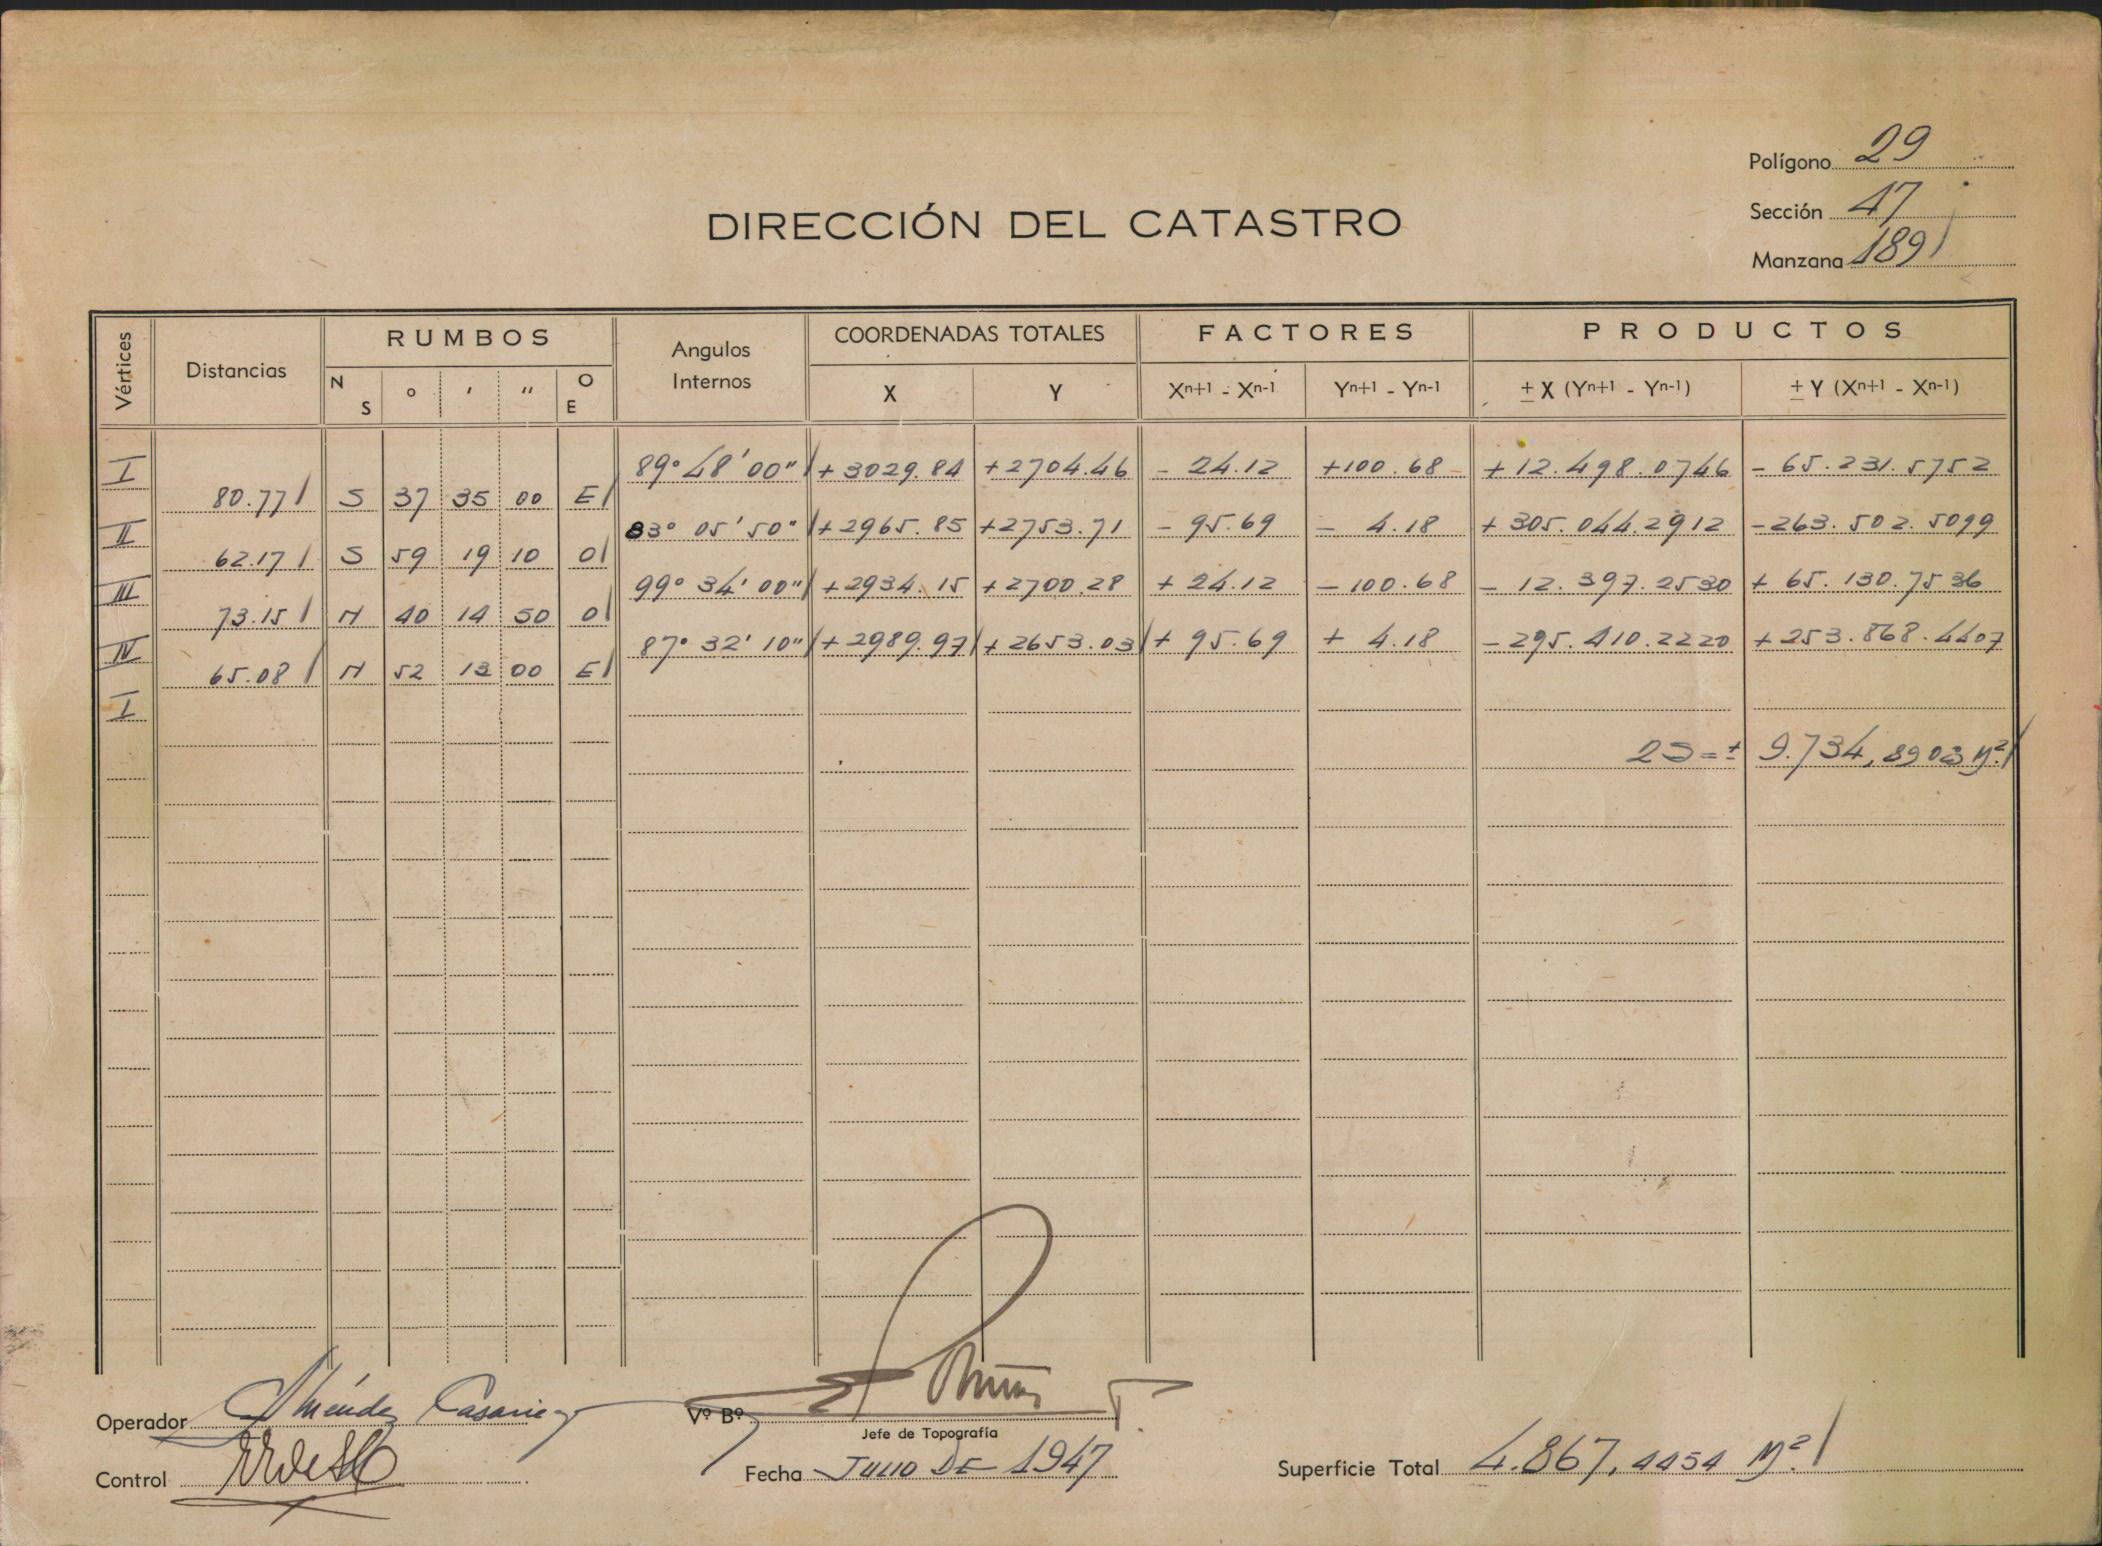 Polígono 29
Sección 47
Manzana 189
DIRECCIÓN DEL CATASTRO
Vértices Distancias RUMBOS Angulos Internos COORDENADAS TOTALES FACTORES PRODUCTOS
N S ° ' " O E X Y Xn+1 - Xn-1 Yn+1 - Yn-1 ± X (Yn+1 - Yn-1) ± Y (Xn+1 - Xn-1)
I 89° 48' 00" +3029.84 +2704.46 - 24.12 +100.68 +12.498.0746 - 65.231.5752
80.77 S 37 35 00 E
II 83° 05' 50" +2965.85 +2753.71 - 95.69 - 4.18 +305.044.2912 -263.502.5099
62.17 S 59 19 10 O
III 99° 34' 00" +2934.15 +2700.28 + 24.12 -100.68 - 12.397.2530 + 65.130.7536
73.15 N 40 14 50 O
IV 87° 32' 10" +2989.97 +2653.03 + 95.69 + 4.18 -295.410.2220 +253.868.4407
65.08 N 52 13 00 E
I
2S=± 9.734,8908 M²
Operador Méndez Casariego Vº Bº
Jefe de Topografía
Control Fecha JULIO DE 1947 Superficie Total 4.867,4454 M²